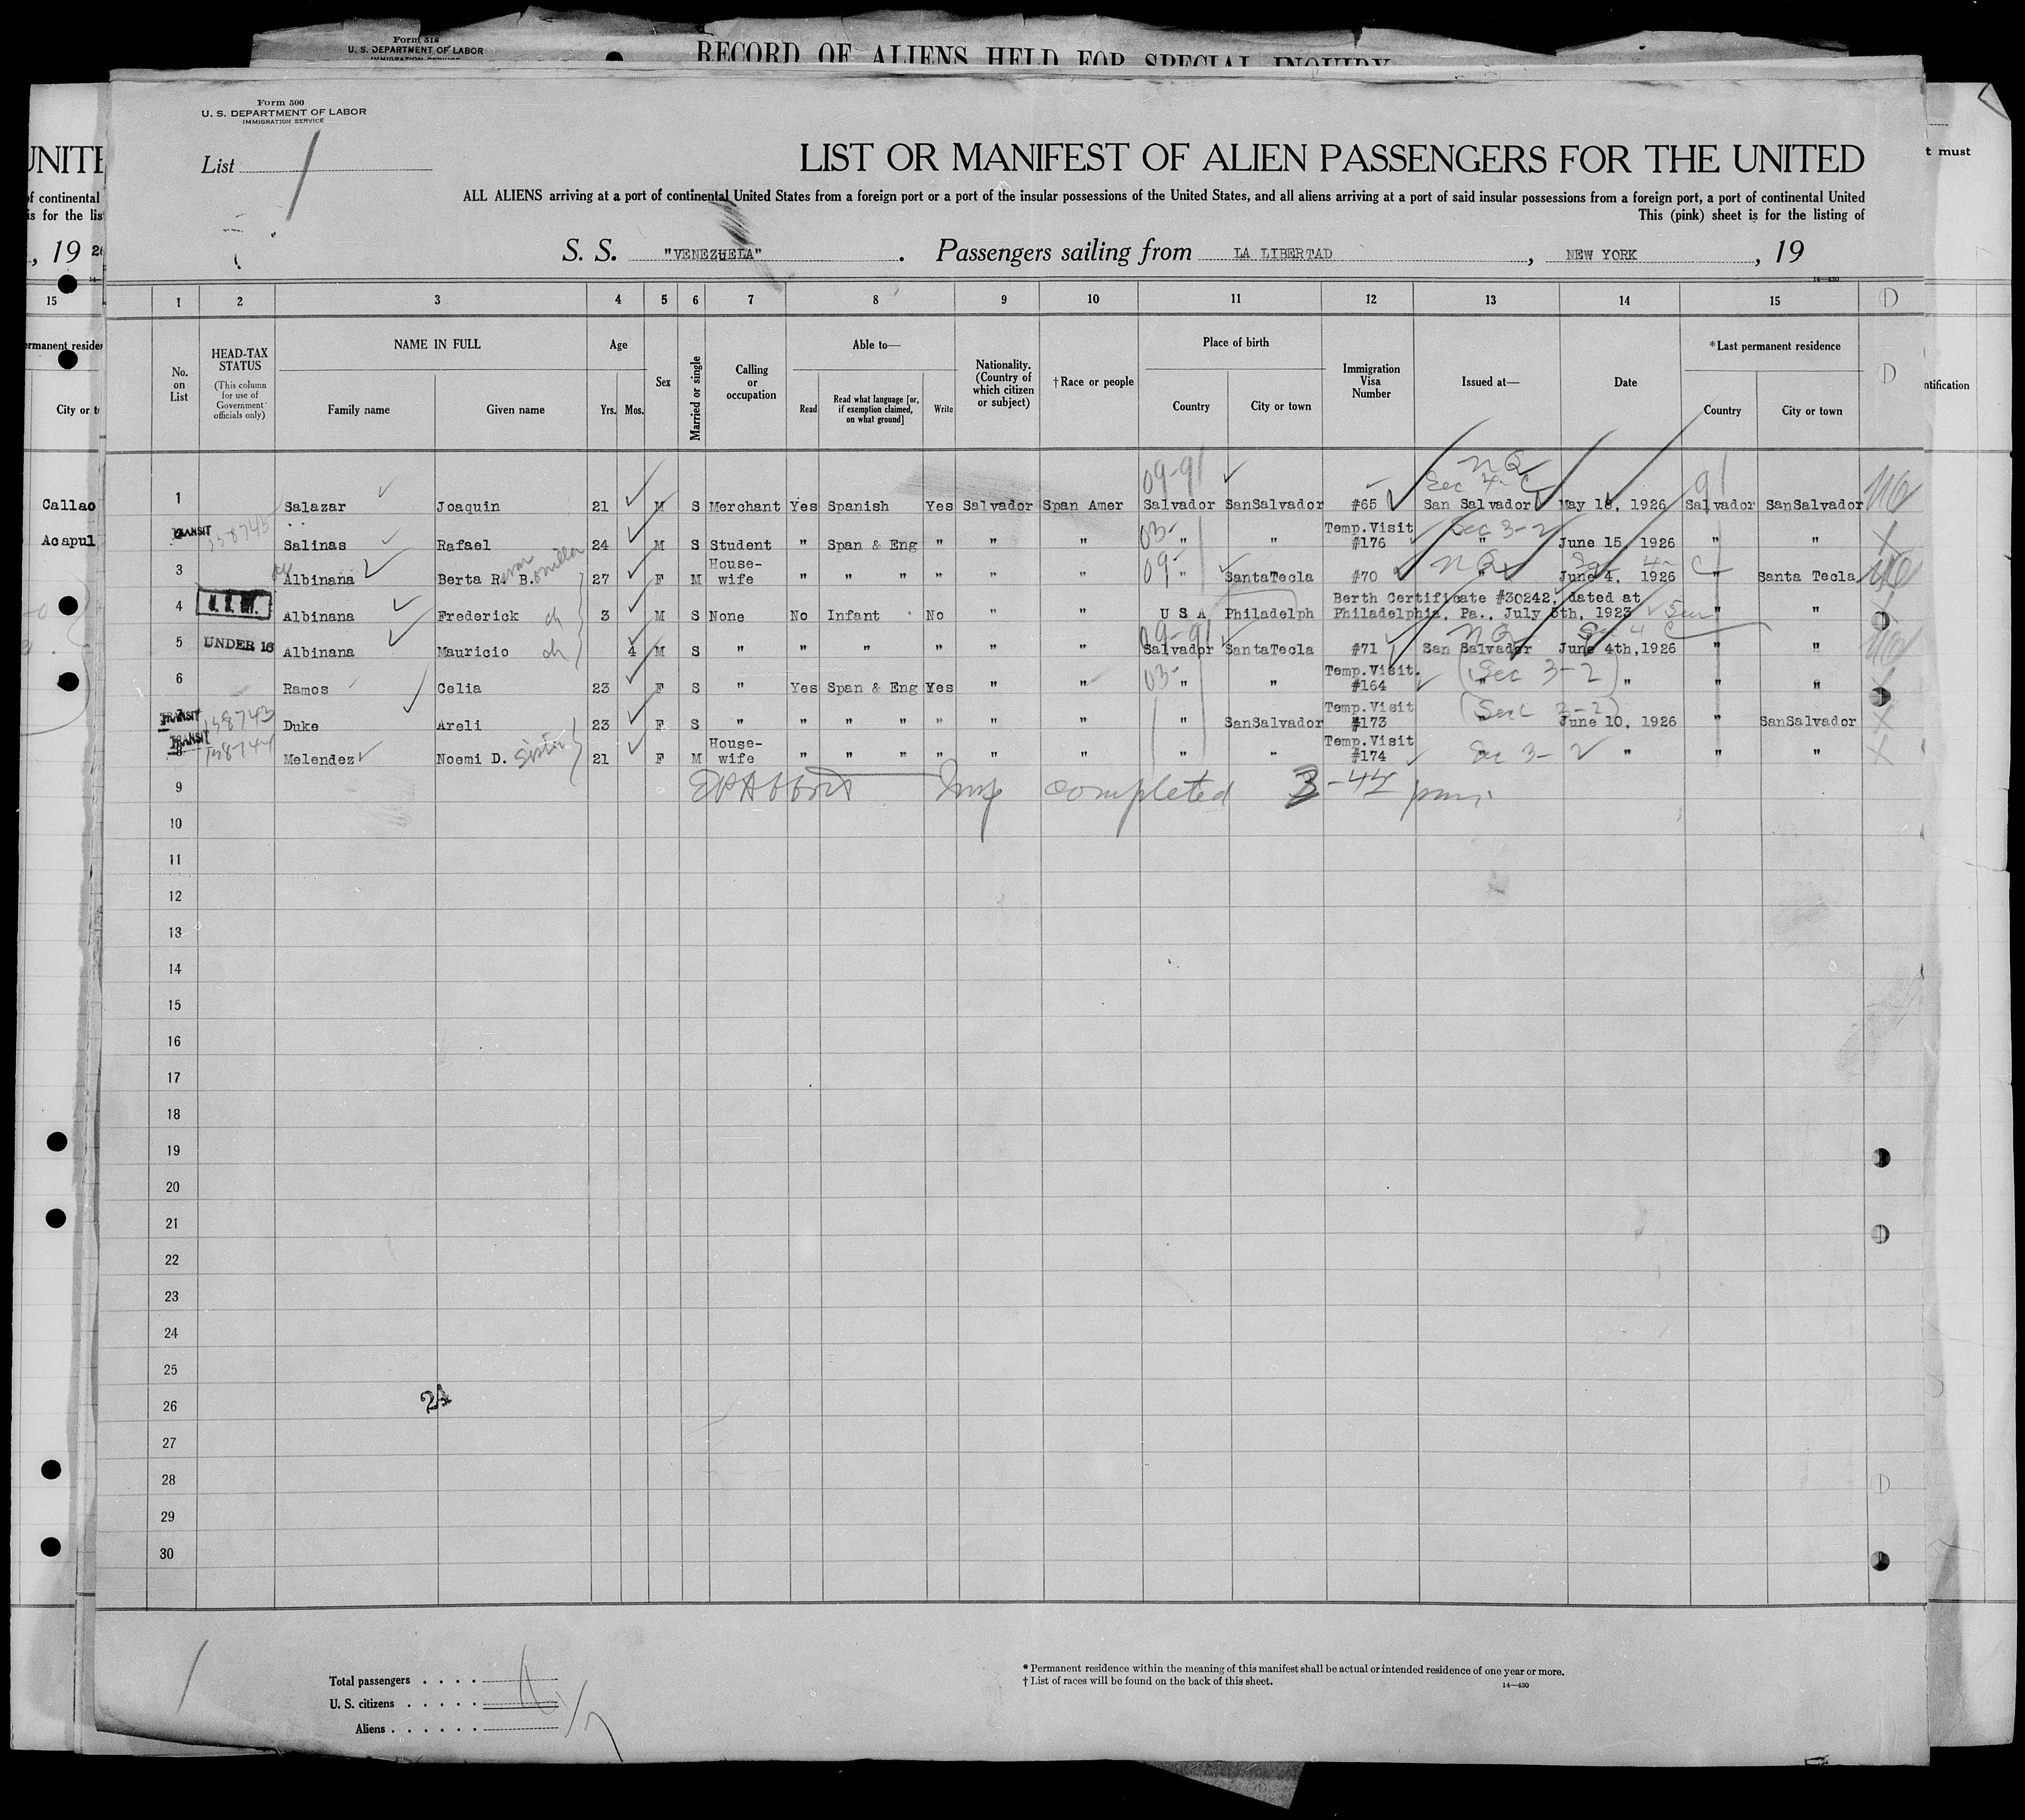 Form 518
U. S. DEPARTMENT OF LABOR
IMMIGRATION SERVICE
RECORD OF ALIENS HELD FOR SPECIAL INQUIRY
Form 500
U. S. DEPARTMENT OF LABOR
IMMIGRATION SERVICE
List 1
LIST OR MANIFEST OF ALIEN PASSENGERS FOR THE UNITED
ALL ALIENS arriving at a port of continental United States from a foreign port or a port of the insular possessions of the United States, and all aliens arriving at a port of said insular possessions from a foreign port, a port of continental United
This (pink) sheet is for the listing of
S. S. "VENEZUELA" . Passengers sailing from LA LIBERTAD , NEW YORK , 19
14—430
1 2 3 4 5 6 7 8 9 10 11 12 13 14 15
No. on List
HEAD-TAX STATUS (This column for use of Government officials only)
NAME IN FULL
Family name Given name
Age
Yrs. Mos.
Sex
Married or single
Calling or occupation
Able to—
Read Read what language [or, if exemption claimed, on what ground] Write
Nationality. (Country of which citizen or subject)
†Race or people
Place of birth
Country City or town
Immigration Visa Number
Issued at—
Date
*Last permanent residence
Country City or town
09-91 NQ Sec 4-C 91
1 Salazar Joaquin 21 M S Merchant Yes Spanish Yes Salvador Span Amer Salvador SanSalvador #65 San Salvador May 18, 1926 Salvador SanSalvador
TRANSIT 158745 Salinas Rafael 24 M S Student " Span & Eng " " " 03- " " Temp.Visit #176 Sec 3-2 June 15, 1926 " "
3 Albinana Berta R. B. 27 F M House-wife " " " " " " 09- " SantaTecla #70 NQ " June 4, 1926 " Santa Tecla
4 Albinana Frederick ch 3 M S None No Infant No " " U S A Philadelph Berth Certificate #30242, dated at Philadelphia, Pa., July 5th, 1923 " "
5 UNDER 16 Albinana Mauricio ch 4 M S " " " " " " 09-91 Salvador SantaTecla #71 NQ San Salvador Sec 4 C June 4th,1926 " "
6 Ramos Celia 23 F S " Yes Span & Eng Yes " " 03- " " Temp.Visit. #164 (Sec 3-2) " " " "
TRANSIT 158743 Duke Areli 23 F S " " " " " " " " SanSalvador Temp.Visit #173 (Sec 3-2) " June 10, 1926 " SanSalvador
TRANSIT 158744 Melendez Noemi D. Sister 21 F M House-wife " " " " " " " " Temp.Visit #174 Sec 3-2 " " " "
9 Insp completed 3-44 pm.
10
11
12
13
14
15
16
17
18
19
20
21
22
23
24
25
26 24
27
28
29
30
Total passengers
U. S. citizens
Aliens
* Permanent residence within the meaning of this manifest shall be actual or intended residence of one year or more.
† List of races will be found on the back of this sheet.
14—430
of continental
is for the
, 19 26
15
City or
Callao
Acapul
t must